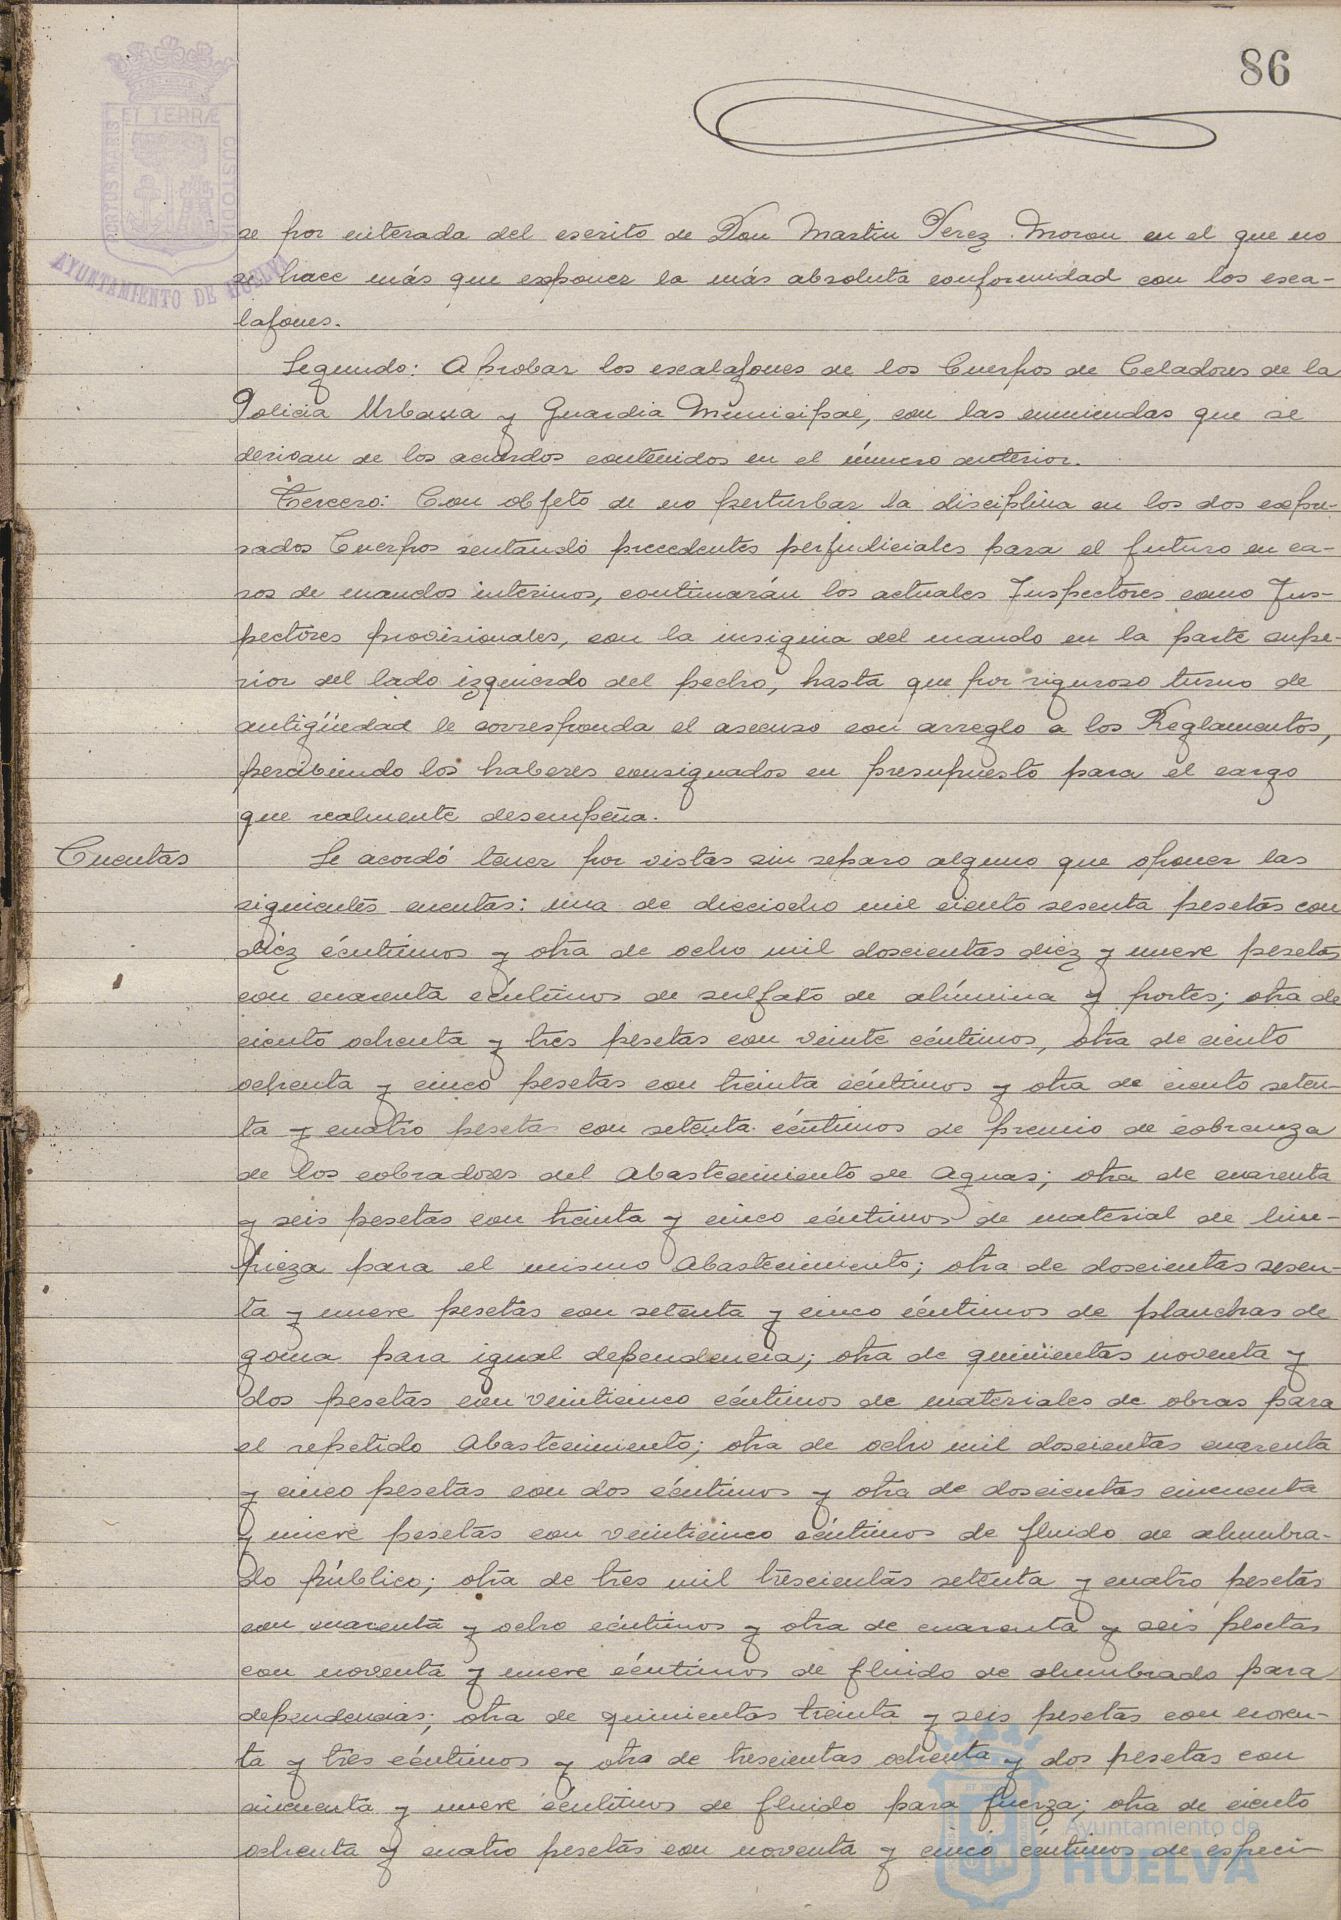 86
PORTUS MARIS
ET TERRÆ
CUSTODIA
AYUNTAMIENTO DE HUELVA
se por enterada del escrito de Don Martin Perez Moron en el que no
se hace más que exponer la más absoluta conformidad con los esca-
lafones.
Segundo: Aprobar los escalafones de los Cuerpos de Celadores de la
Policia Urbana y Guardia Municipal, con las enmiendas que se
derivan de los acuerdos contenidos en el número anterior.
Tercero: Con objeto de no perturbar la disciplina en los dos expre-
sados Cuerpos sentando precedentes perjudiciales para el futuro en ca-
sos de mandos interinos, continuarán los actuales Inspectores como Ins-
pectores provisionales, con la insignia del mando en la parte supe-
rior del lado izquierdo del pecho, hasta que por riguroso turno de
antigüedad le corresponda el ascenso con arreglo a los Reglamentos,
percibiendo los haberes consignados en presupuesto para el cargo
que realmente desempeña.
Cuentas
Se acordó tener por vistas sin reparo alguno que oponer las
siguientes cuentas: una de dieciocho mil ciento sesenta pesetas con
diez céntimos y otra de ocho mil doscientas diez y nueve pesetas
con cuarenta céntimos de sulfato de alúmina y portes; otra de
ciento ochenta y tres pesetas con veinte céntimos, otra de ciento
ochenta y cinco pesetas con treinta céntimos y otra de ciento seten-
ta y cuatro pesetas con setenta céntimos de premio de cobranza
de los cobradores del Abastecimiento de Aguas; otra de cuarenta
y seis pesetas con treinta y cinco céntimos de material de lim-
pieza para el mismo Abastecimiento; otra de doscientas sesen-
ta y nueve pesetas con setenta y cinco céntimos de planchas de
goma para igual dependencia; otra de quinientas noventa y
dos pesetas con veinticinco céntimos de materiales de obras para
el repetido Abastecimiento; otra de ocho mil doscientas cuarenta
y cinco pesetas con dos céntimos y otra de doscientas cincuenta
y nueve pesetas con veinticinco céntimos de fluido de alumbra-
do público; otra de tres mil trescientas setenta y cuatro pesetas
con cuarenta y ocho céntimos y otra de cuarenta y seis pesetas
con noventa y nueve céntimos de fluido de alumbrado para
dependencias; otra de quinientas treinta y seis pesetas con noven-
ta y tres céntimos y otra de trescientas ochenta y dos pesetas con
cincuenta y nueve céntimos de fluido para fuerza; otra de ciento
ochenta y cuatro pesetas con noventa y cinco céntimos de especi-
Ayuntamiento de
HUELVA